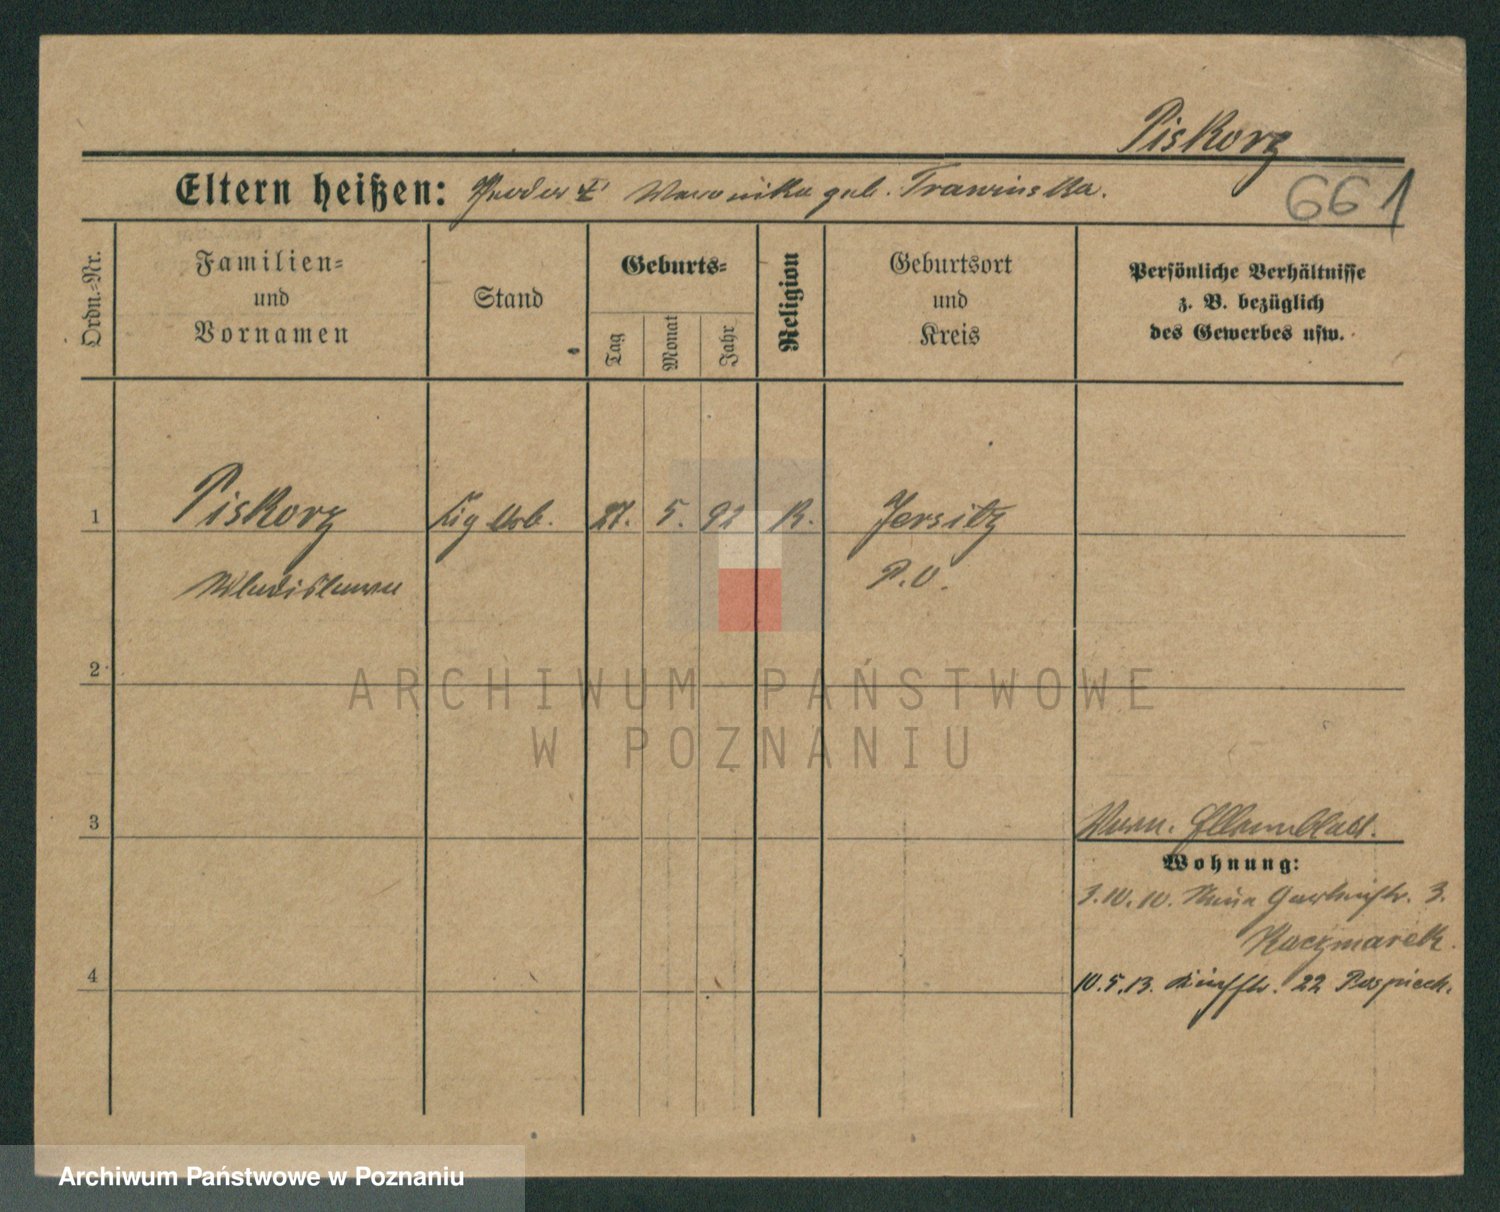 Piskorz
Eltern heißen: Theodor u Veronika geb. Trawinska.
661
Ordn.-Nr.
Familien-
und
Vornamen
Stand
Geburts-
Tag
Monat
Jahr
Religion
Geburtsort
und
Kreis
Persönliche Verhältnisse
z. B. bezüglich
des Gewerbes usw.
1
Piskorz
Zig Arb.
27.
5.
92
K.
Jersitz
Wladislawa
P.O.
2
ARCHIWUM PAŃSTWOWE
W POZNANIU
3
Elternblatt.
Wohnung:
3.10.10. Neue Gartenstr. 3.
Kaczmarek.
4
10.5.13. 22 Pospiech.
Archiwum Państwowe w Poznaniu